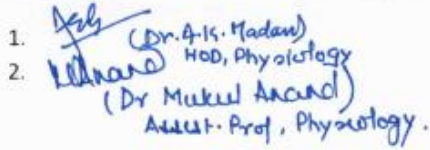 1. (Dr. A.K. Madan)
HOD, Physiology
2. MAnand
(Dr Mukul Anand)
Assist. Prof, Physiology.